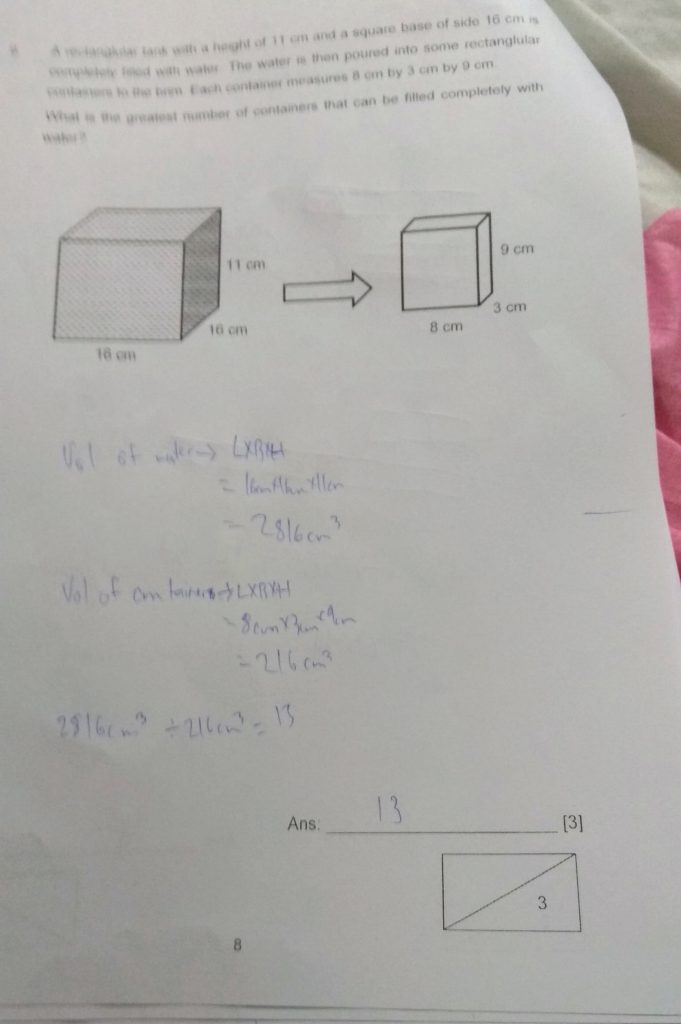 A rectangluiar tank with a height of 11 cm and a square base of side 16 cm is
completely filled with water. The water is then poured into some rectanglular
containers to the brim. Each container measures 8 cm by 3 cm by 9 cm.
What is the greatest number of containers that can be filled completely with
water?
11 cm
16 cm
16 cm
9 cm
3 cm
8 cm
Vol of water → LXBXH
= 16cm×16cm×11cm
= 2816cm³
Vol of containers → LXBXH
= 8cm×3cm×9cm
= 216cm³
2816cm³ ÷ 216cm³ = 13
Ans: 13 [3]
3
8